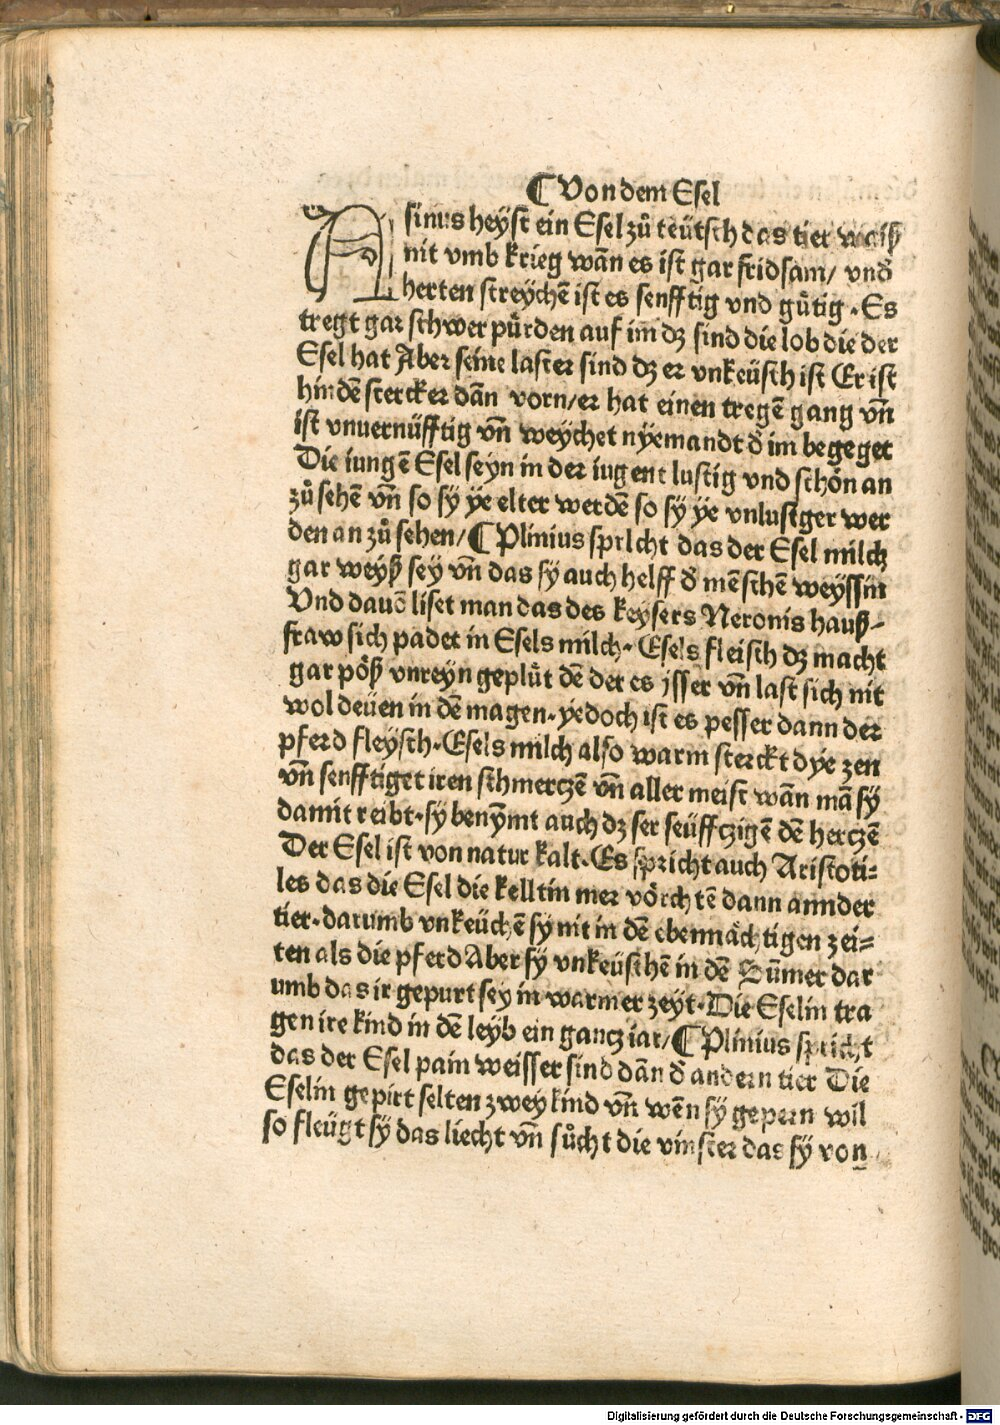 ¶ Von dem Esel
Asinus heyst ein Esel zů teütsch das tier waiß
nit vmb krieg wañ es ist gar fridsam/ vnd
herten streychē ist es senfftig vnd gütig. Es
tregt gar schwer pürden auf im dz sind die lob die der
Esel hat Aber seine laster sind dz er vnkeüsch ist Er ist
hindē stercker dañ vorn/er hat einen tregē gang vñ
ist vnuernüfftig vñ weychet nyemandt d̓ im begeget
Die iungē Esel seyn in der iugent lustig vnd schön an
zů sehē vñ so sy ye elter werdē so sy ye vnlustger wer
den an zů sehen/ ¶ Plinius spricht das der Esel milch
gar weyß sey vñ das sy auch helff d̓ mēschē weyssin
Vnd dauō liset man das des keysers Neronis hauß-
fraw sich padet in Esels milch. Esels fleisch dz macht
gar pöß vnreyn geplüt dē der es isser vñ last sich nit
wol deüen in dē magen. yedoch ist es pesser dann der
pferd fleysch. Esels milch also warm sterckt dye zen
vñ senfftiget iren schmerczē vñ aller meist wañ mā sy
damit reibt. sy benymt auch dz ser seüffczigē dē herczē
Der Esel ist von natur kalt. Es spricht auch Aristoti=
les das die Esel die kelltin mer vörchtē dann annder
tier. darumb vnkeüchē sy nit in dē ebennächtigen zei=
ten als die pferd Aber sy vnkeüschē in dē Sümer dar
umb das ir gepurt sey in warmer zeyt. Die Eselin tra
gen ire kind in dē leyb ein gancz iar/ ¶ Plinius spricht
das der Esel pain weisser sind dañ d̓ andern tier Die
Eselin gepirt selten zwey kind vñ weñ sy gepern wil
so fleügt sy das liecht vñ sůcht die vinster das sy von
Digitalisierung gefördert durch die Deutsche Forschungsgemeinschaft - DFG